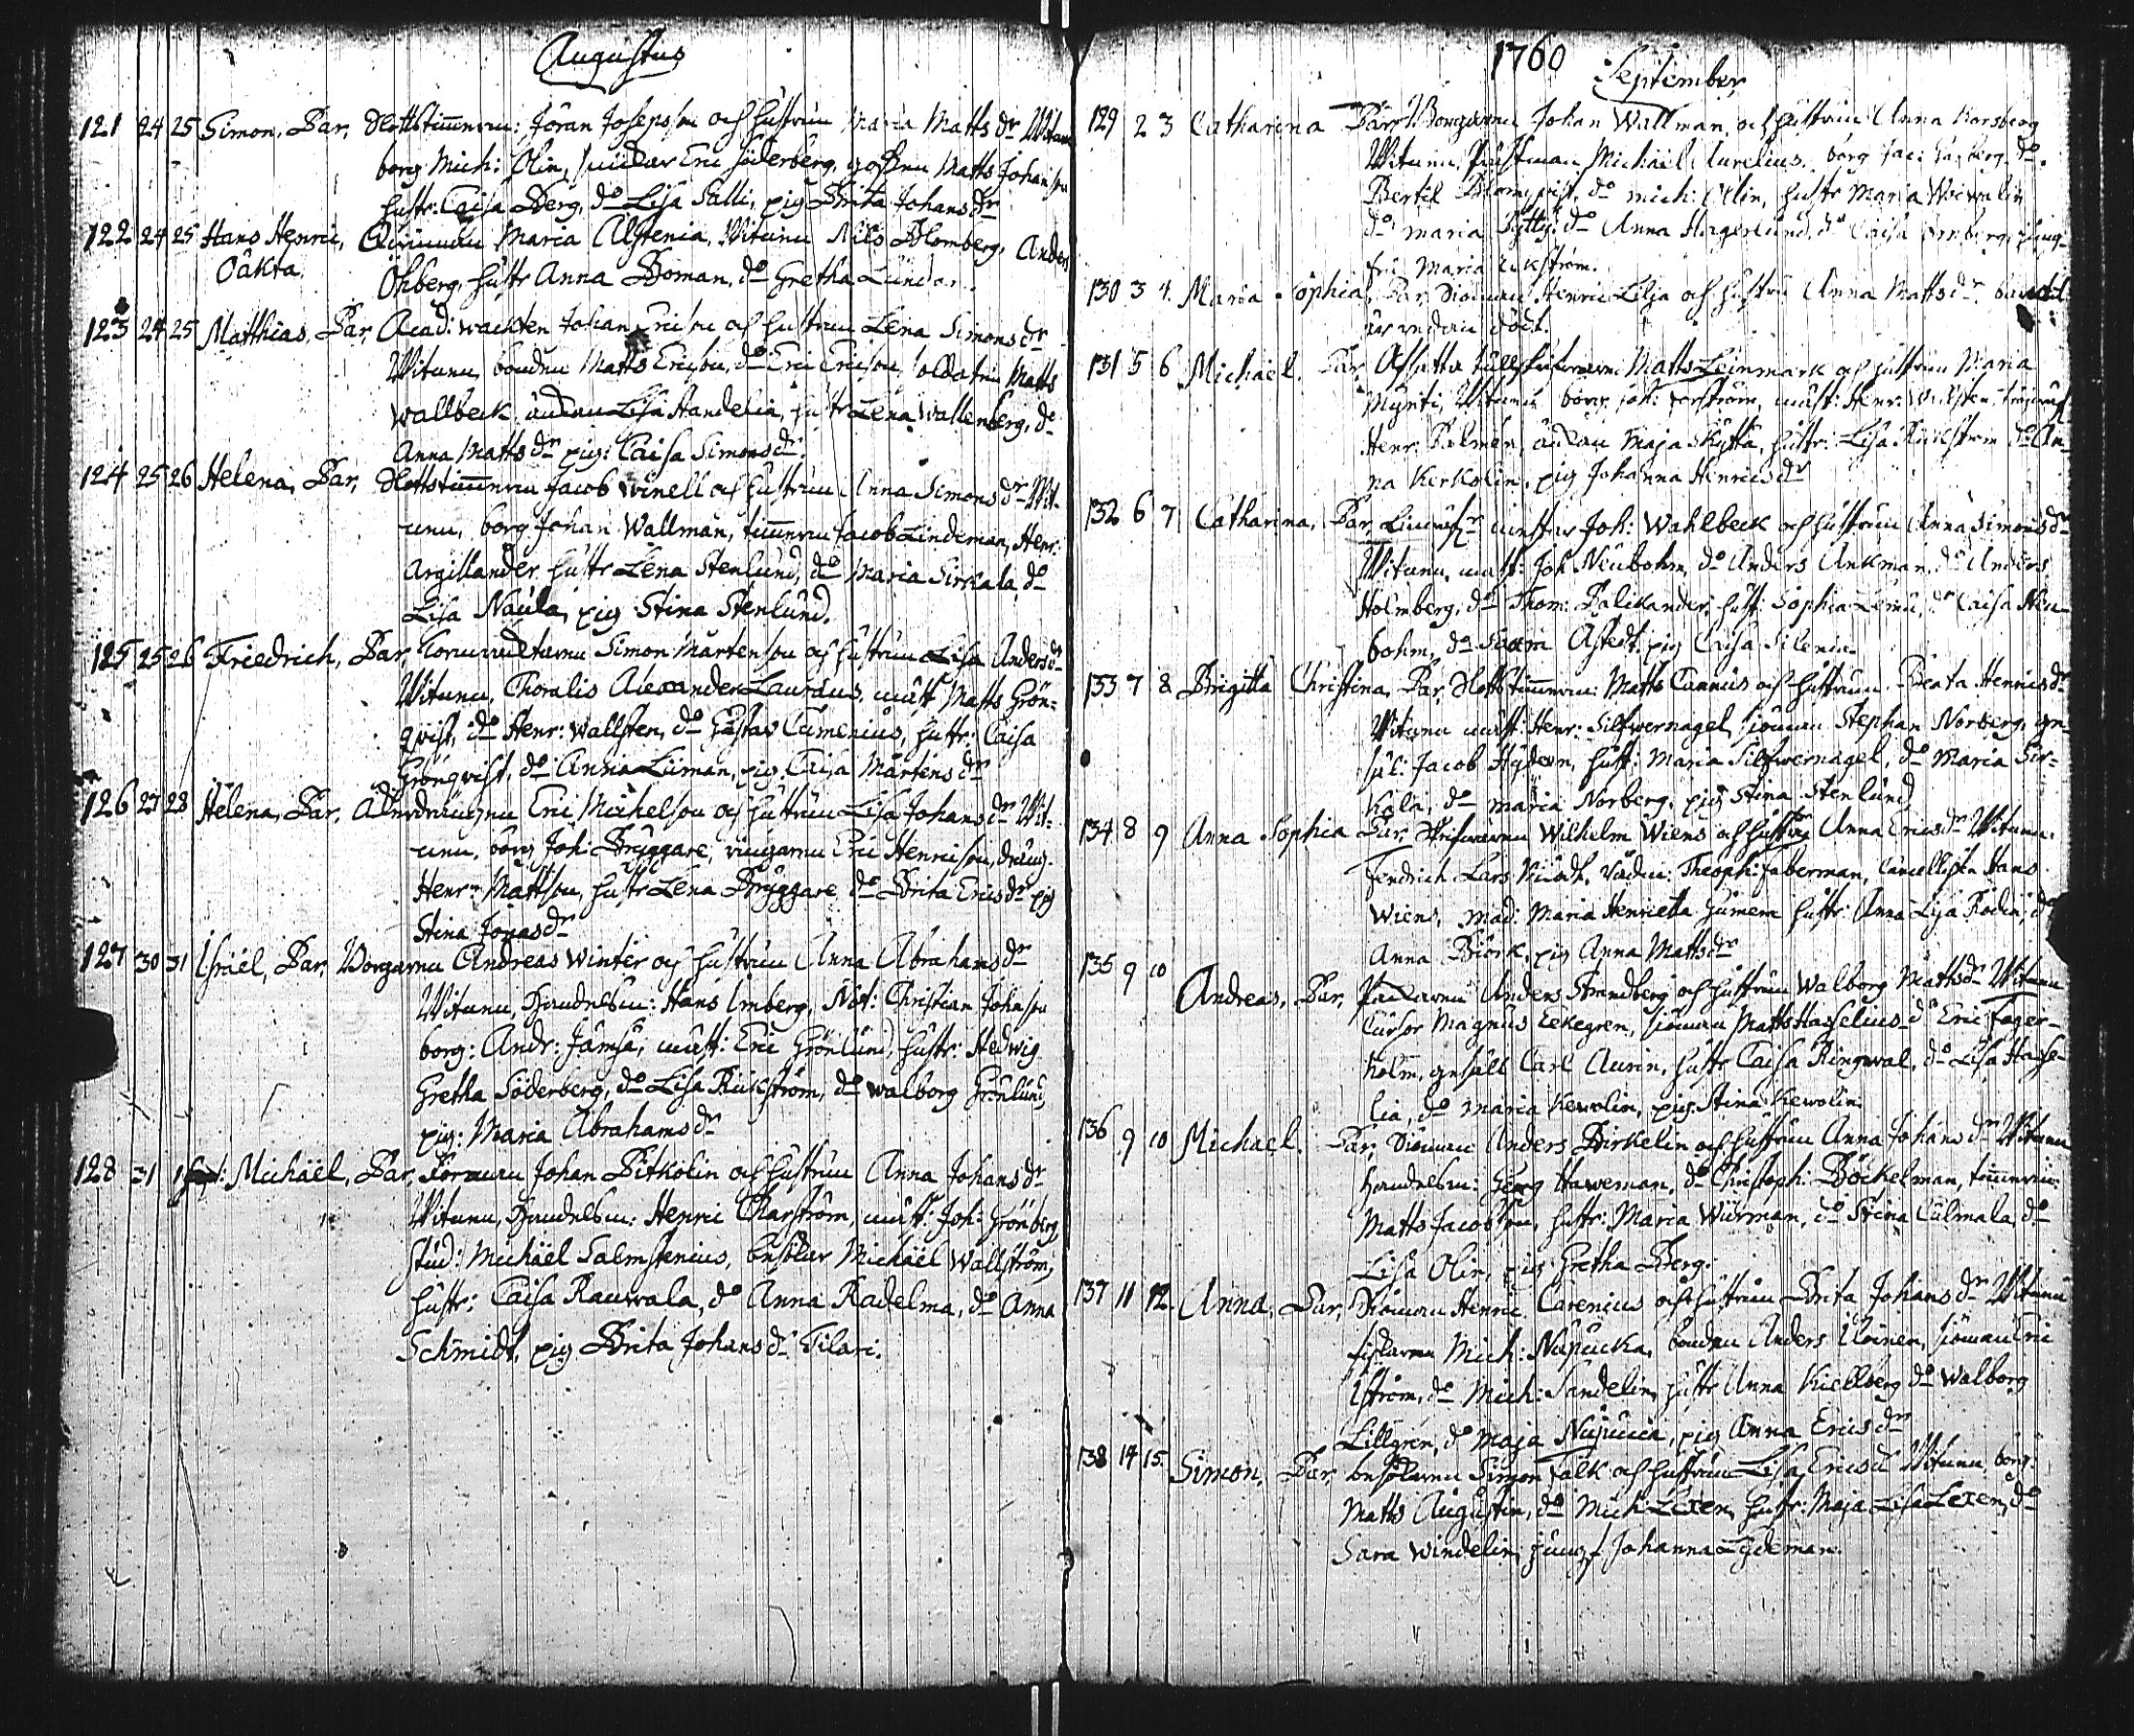 Augustus
121 24 25 Simon, Par, Slottstimmerm: Jöran Josepsson och hustrun Maria Matts dr
borg Mich: Olin, Eric Söderberg, Matts Johansson
hustr: Caisa Berg, do Lisa Salli, pig Brita Johans dr
122 24 25 Hans Henric, Qvinnan Maria Alstenia, Witnen Nils Blomberg, Anders
Oäkta. Öhberg, hustr Anna Boman, do Gretha
123 24 25 Matthias, Par, Acad: wackten Johan Ericson och hustrun Lena Simons dr
Witnen, bonden Matts Ericson, do Eric Ericson, soldaten Matts
Wallbeck, Lisa Sandelia, hustr Lena Wallenberg, do
Anna Matts dr pig: Caisa Simons dr.
124 25 26 Helena, Par, Slottstimmerm Jacob Winell och hustrun Anna Simons dr Wit-
nen, borg Johan Wallman, timmerm Jacob Lindeman, Henr:
Argillander, hustr Lena Stenlund, do Maria Sirkala, do
Lisa Naula, pig Stina Stenlund.
125 25 26 Friedrich, Par, Simon Mårtenson och hustrun Lisa Anders dr
Witnen, Choralis Alexander Lauraus, mäst Matts Grön-
qvist, do Henr: Wallsten, do Gustav Cumenius, hustr: Caisa
Grönqvist, do Anna Liiman, pig. Caisa Mårtens dr
126 27 28 Helena, Par, Eric Michelson och hustrun Lisa Johans dr Wit-
nen, borg Joh: Bryggare, Eric Henricson, dräng
Henr: Mattson, hustr Lena Bryggare do Brita Erics dr pig
Stina Jonas dr
127 30 31 Israel, Par, Borgaren Andreas Winter och hustrun Anna Abrahams dr
Witnen, Handelsm: Hans Imberg, Not: Christian Johnson
borg: Andr: Jämsä, mäst: Eric Grönlund, hustr: Hedwig
Gretha Söderberg, do Lisa Rickström, do Walborg Grönlund,
pig: Maria Abrahams dr
128 31 1 Sept: Michäel, Par, Johan Pitkolin och hustrun Anna Johans dr
Witnen, Handelsm: Henric Charström, mäst: Joh: Grönberg
Stud: Michäel Salmstenius, besökar Michäel Wallström,
hustr: Caisa Rauwala, do Anna Radelma, do Anna
Schmidt, pig Brita Johans dr Tilari.
1760
September
129 2 3 Catharina Par, Borgaren Johan Wallman, och hustrun Anna Korsberg
Witnen, Michäel Aurelius, borg Jac:
Bertil Blomqvist, do Mich: Olin, hustr Maria
do Maria do Anna Hagerlund, do Caisa
Maria Ekström.
130 3 4 Maria Sophia, Par, Siöman Henric Lilja och hustrun Anna Matts dr barnet
är redan dödt.
131 5 6 Michäel. Par, Matts Leinmark och hustrun Maria
Mynti, Witnen, borg: Joh: mäst: Henr: Wallsten,
Henr Palmén, Maja Skytta, hustr: Lisa Rickström do An-
na Kerkolin, pig Johanna Henrics dr
132 6 7 Catharina, Par, Joh: Wahlbeck och hustrun Anna Simons dr
Witnen, mäst: Joh Neubohm, do Anders Ankman, do Anders
Holmberg, do Thom: Palikander, hust: Sophia do Caisa Neu-
bohm, do pig Caisa Silenia.
133 7 8 Brigitta Christina, Par, Slottstimmerm: Matts Cannius och hustrun Beata Henrics dr
Witnen mäst: Henr: Silfwernagel, siöman Stephan Norberg, ge-
säl: Jacob Hyden, hust: Maria Silfwernagel, do Maria Sir-
kala, do Maria Norberg, pig Stina Stenlund
134 8 9 Anna Sophia Par, Wilhelm Wiens och hustru Anna Erics dr Witnen.
Fendrich Lars Theoph: Faberman, Cancellisten Hans
Wiens, mad: Maria Henrietta hustr: Anna Lisa Rodin, do
Anna Biörk, pig Anna Matts dr
135 9 10 Andreas, Par, Anders Strandberg och hustrun Walborg Matts dr Witnen
Cursor Magnus Eekegren, siöman Matts Hasselius do Eric Fager-
holm, gesäll Carl Aurin, hustr Caisa Ringwal, do Lisa Hasse-
lia, do Maria Kewolin, pig: Stina Kewolin
136 9 10 Michael. Par, Siöman Anders Birkelin och hustrun Anna Johans dr Witnen
handelsm: Georg Haweman, do Christoph: Böckelman, timmerm:
Matts Jacobson, hustr: Maria Wiirman, do Stina Culmala do
Lisa Olin, pig Gretha Berg.
137 11 12 Anna, Par, Siöman Henric Carenius och hustrun Brita Johans dr Witnen
fiskaren Mich: Nupucka, bonden Anders siöman Eric
Iström, do Mich: Sandelin, hustr Anna Kiellberg do Walborg
Lillgren, do Maja pig Anna Erics dr
138 14 15 Simon, Par, besökaren Simon Falk och hustrun Lisa Erics dr Witnen, borg:
Matts Augustin, do Mich: Lexen, hustr: Maja Lisa Lexen, do
Sara Windelin, jungf Johanna Lydeman.